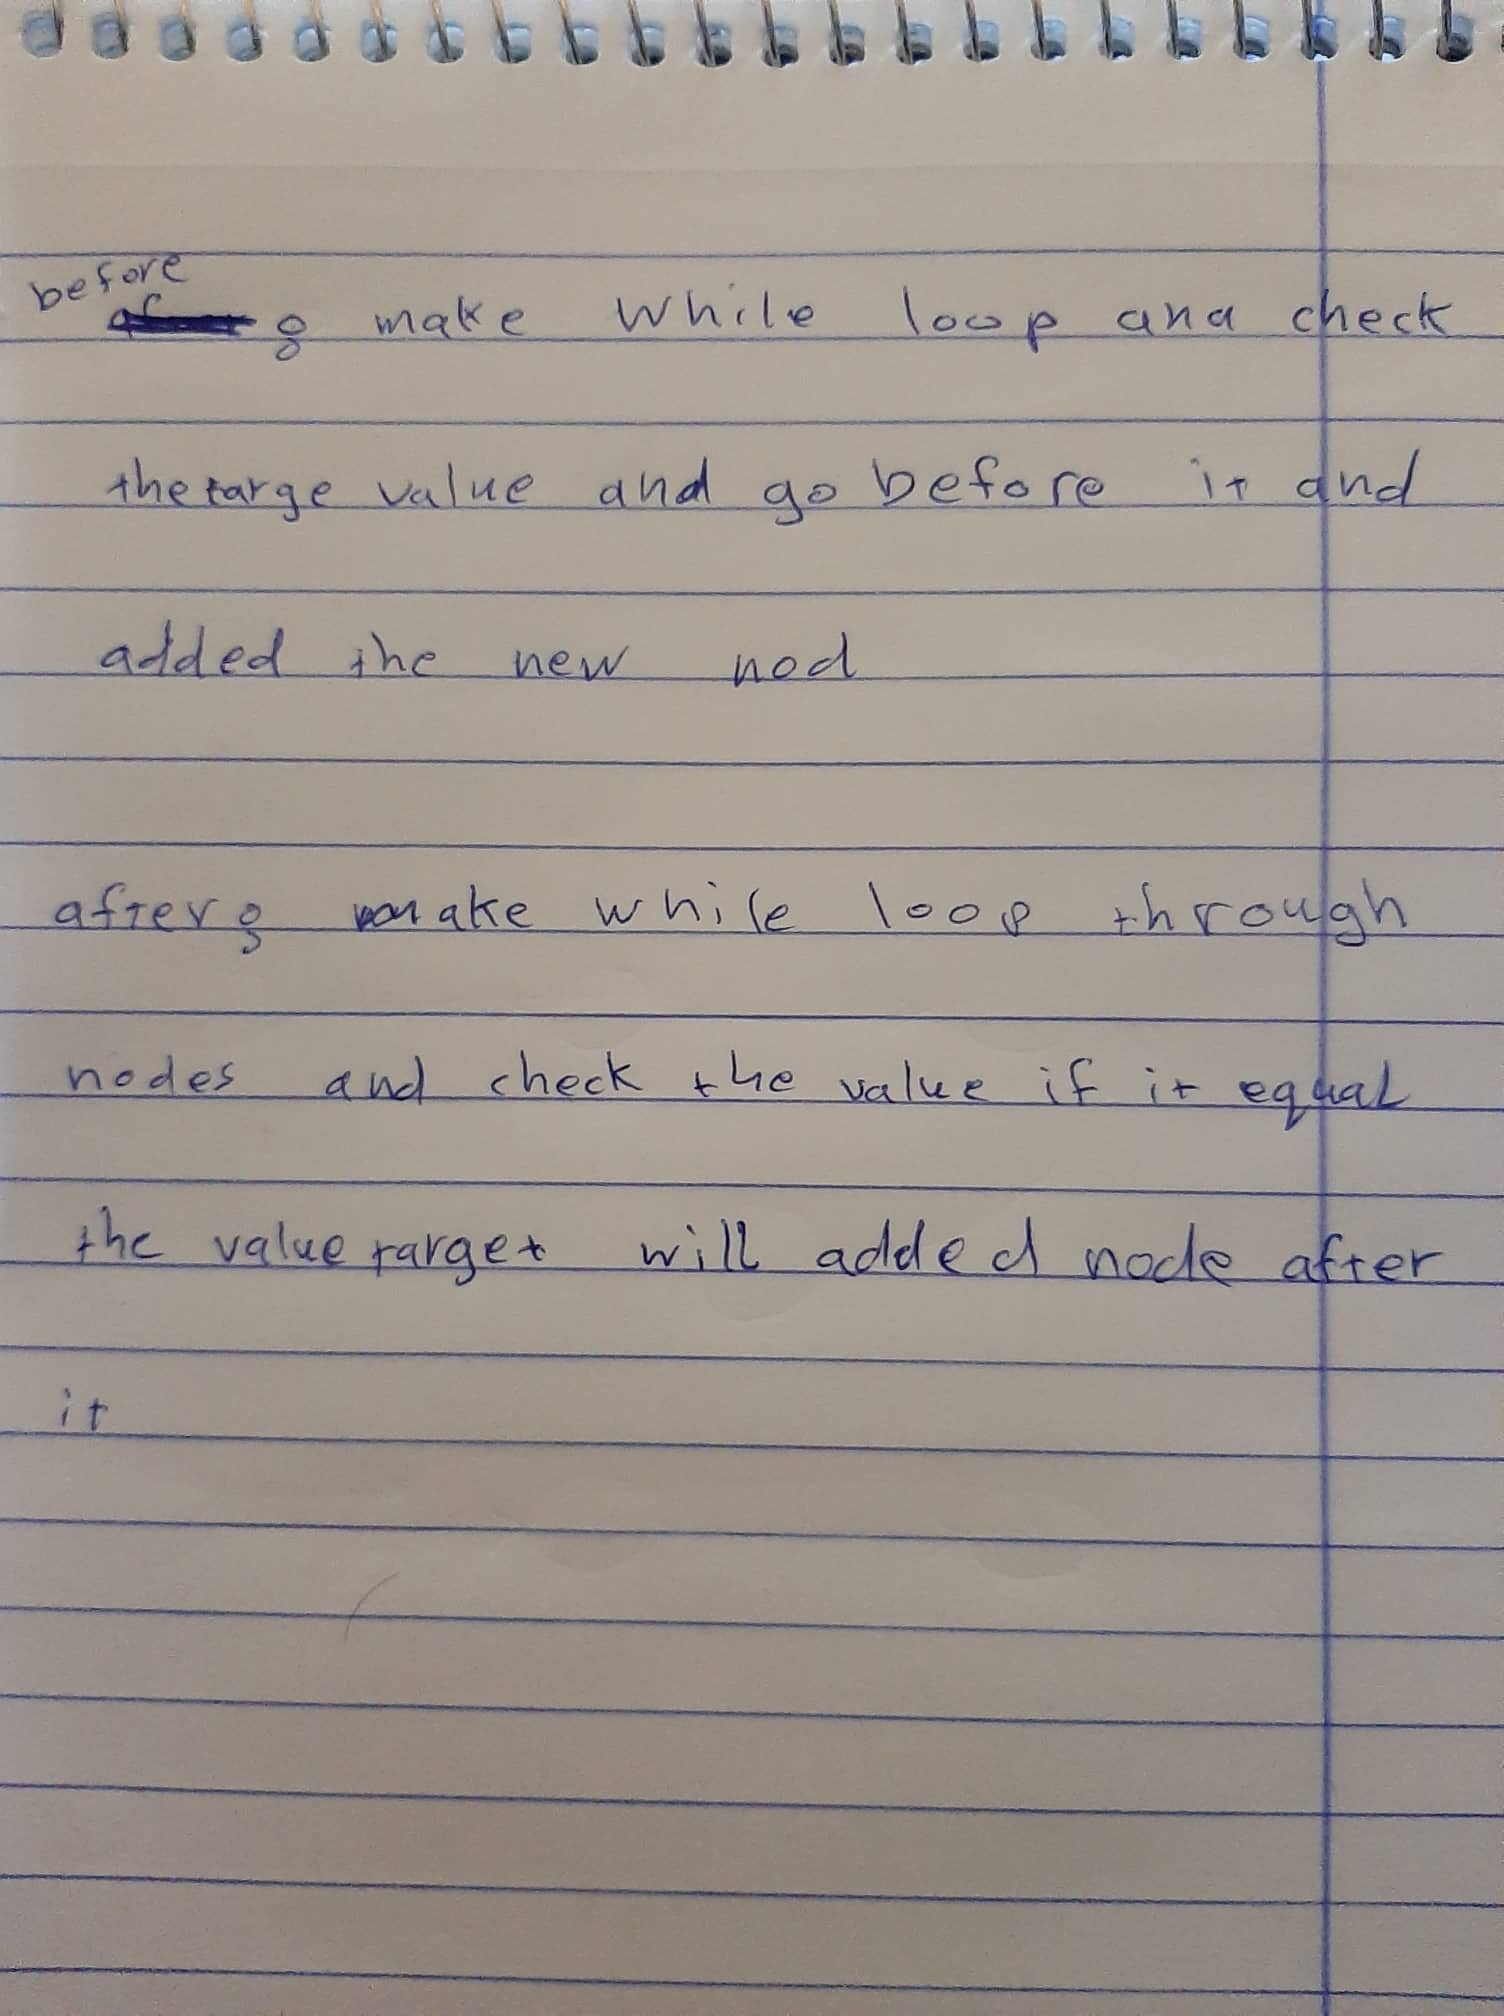 before : make while loop and check
the targe value and go before it and
added the new nod
after : make while loop through
nodes and check the value if it equal
the value target will added node after
it